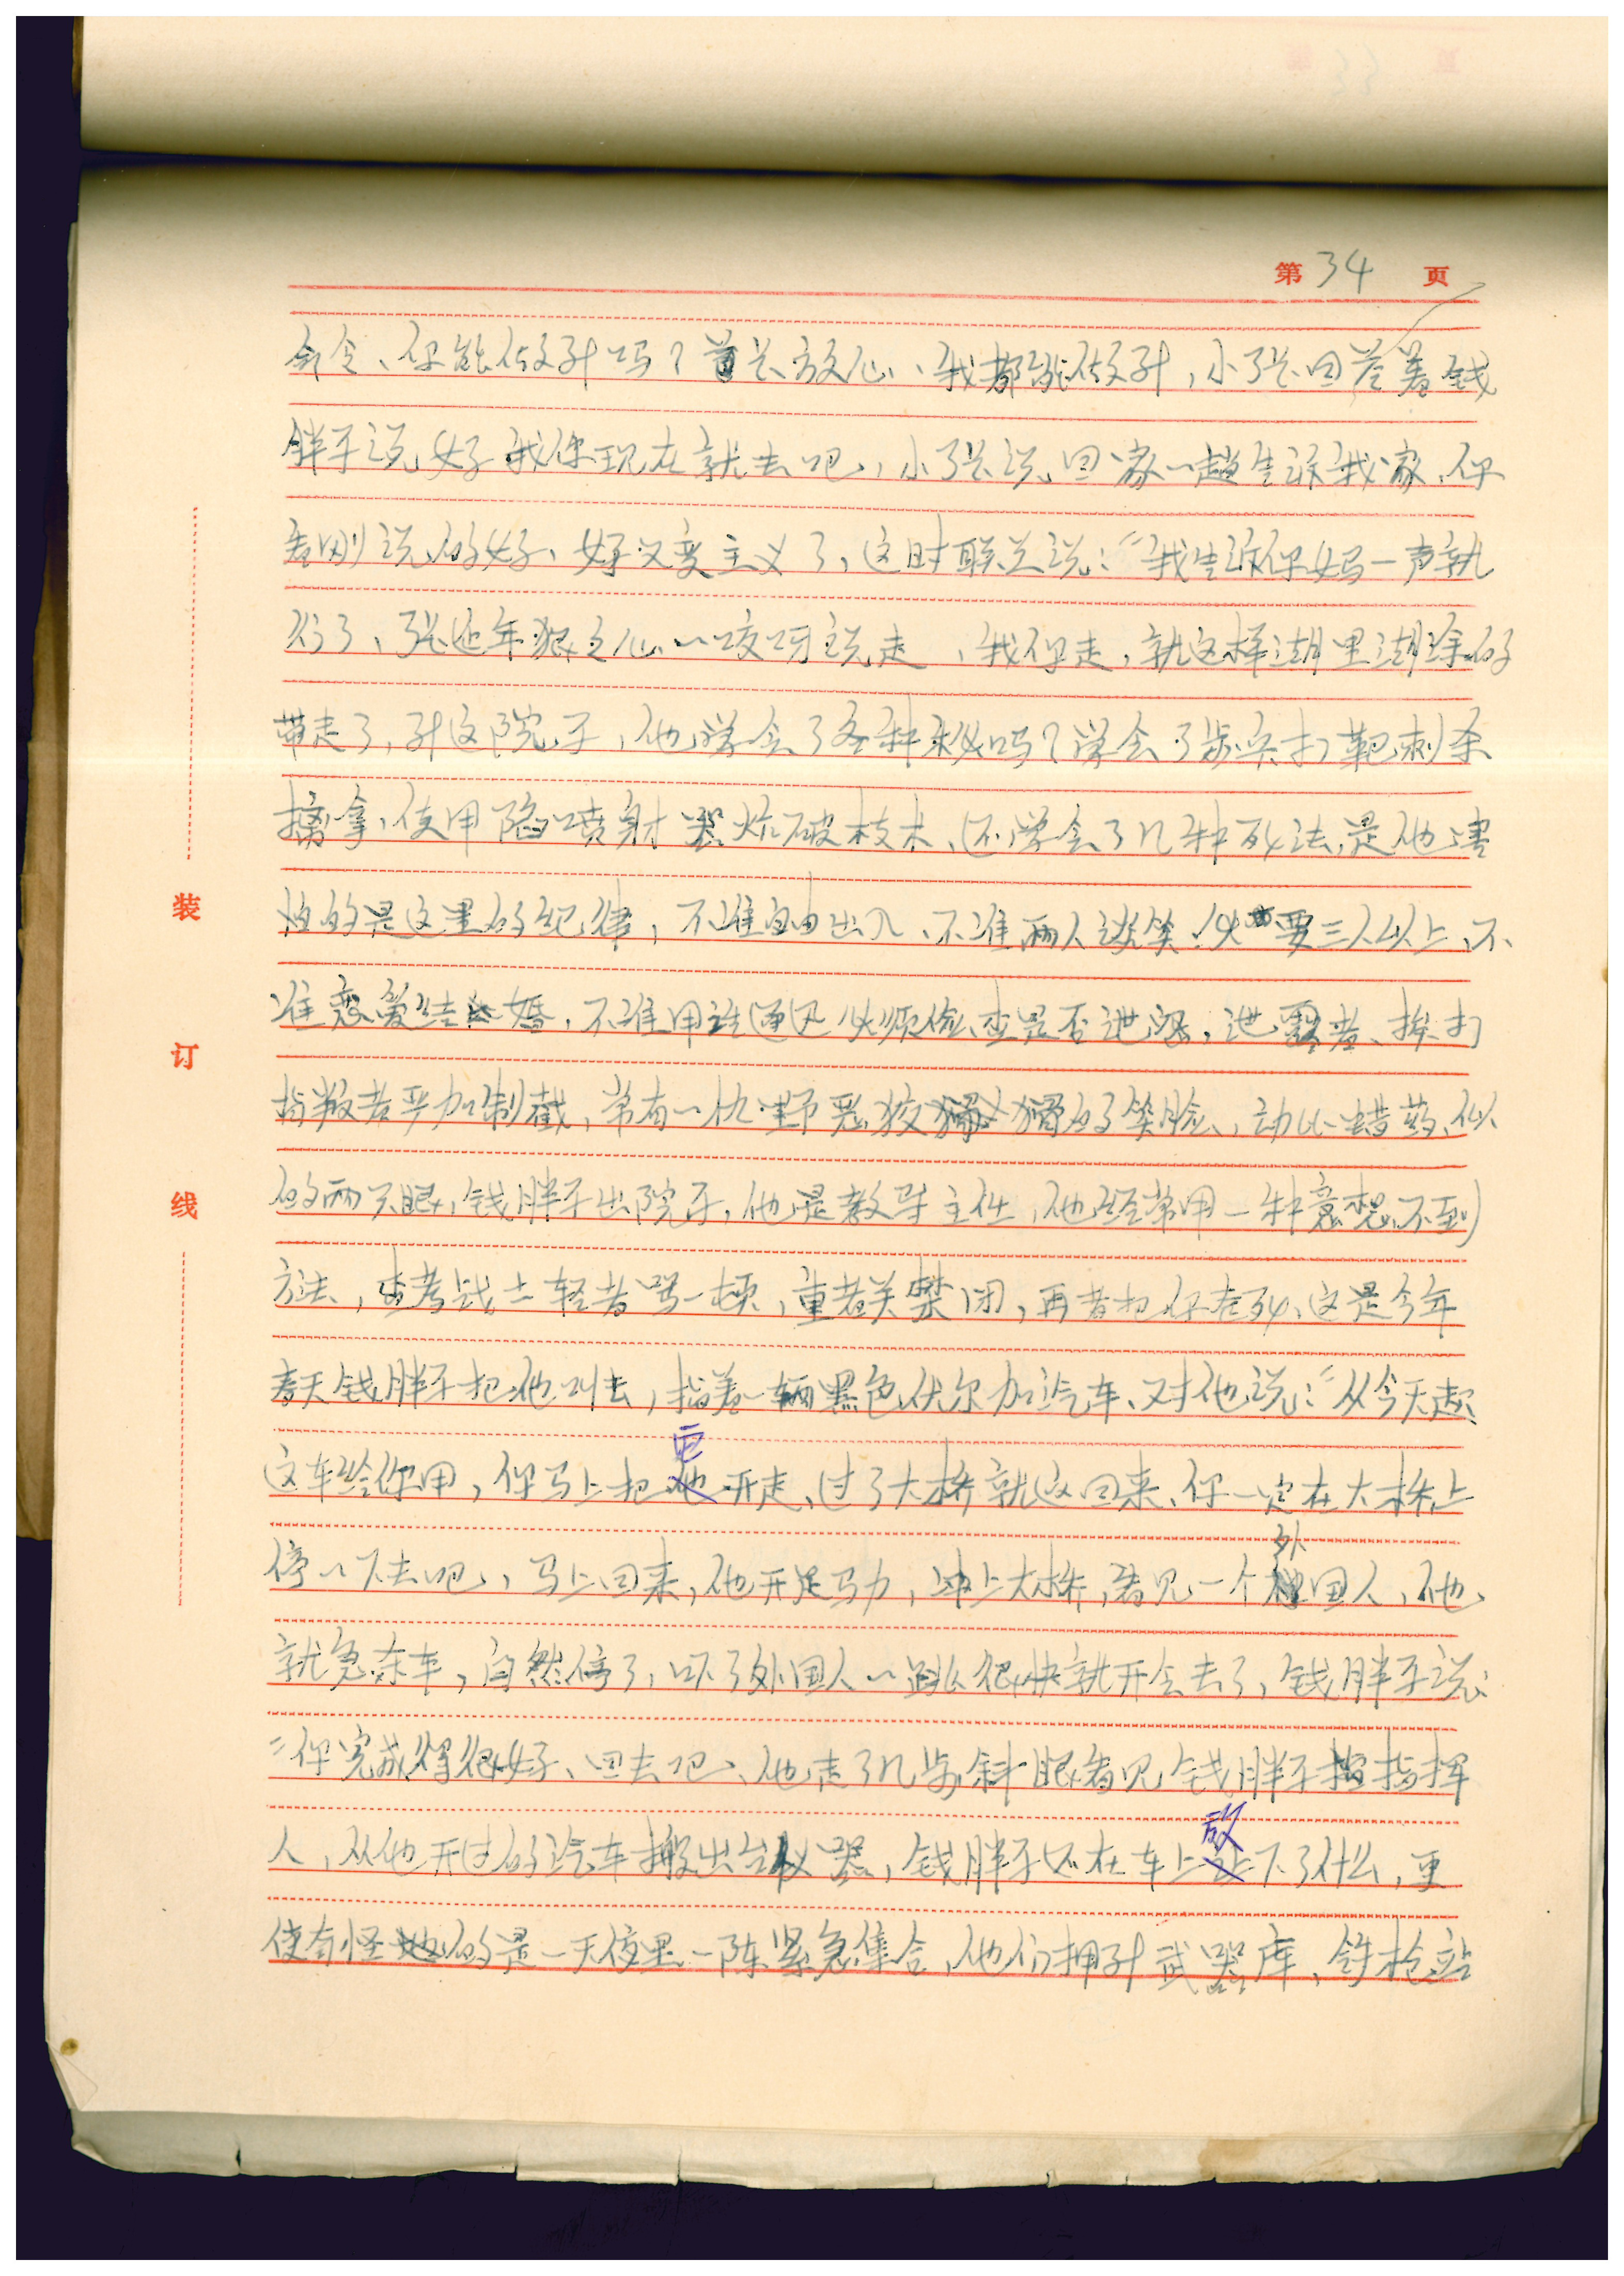 第34页
命令、你能做到吗？首长放心、我都能做到，小张回答着钱
胖子说好我你现在就去吧，小张说回家一趟告诉我家、你
看刚说的好、好又变主义了，这时联兰说：“我告诉你妈一声就
行了、张延年狠之心一咬牙说走，我你走，就这样湖里湖涂的
带走了，到这院子，他学会了各种秘吗？学会了步兵打靶刺杀
擒拿，使用陷喷射器炸破技术、还学会了几种死法，是他害
怕的是这里的纪律，不准自由出入、不准两人谈笑，必要三人以上、不
准恋爱结婚，不准用访通风必须检查是否泄密，泄露者、挨打
指叛者严加制裁，常有一仇野恶狡猾的笑脸，动比蜡药、似
的两只眼，钱胖子出院子，他是教导主任，他经常用一种意想不到
方法，查考战士轻者骂一顿，重者关禁闭，再者把你老死、这是今年
春天钱胖子把他叫去，指着一辆黑色伏尔加汽车、对他说：“从今天起、
这车给你用，你马上把它开走、过了大桥就这回来、你一定在大桥上
停一下去吧，马上回来，他开足马力，冲上大桥，看见一个外国人，他
就急杀车，自然停了，吓了外国人一跳很快就开会去了，钱胖子说：
“你完成得很好、回去吧、他走了几步斜眼看见钱胖子指挥
人，从他开过的汽车搬出台仪器，钱胖子还在车上放下了什么，更
使奇怪的是一天夜里一阵紧急集合，他们拥到武器库，钱枪站
装
订
线